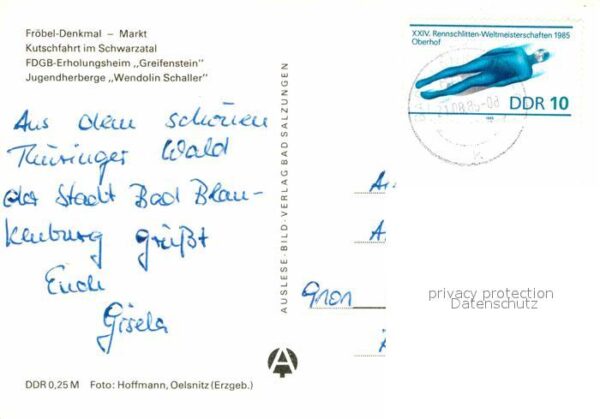 Fröbel-Denkmal – Markt
Kutschfahrt im Schwarzatal
FDGB-Erholungsheim „Greifenstein"
Jugendherberge „Wendolin Schaller"
Aus dem schönen
Thüringer Wald
der Stadt Bad Blan-
kenburg grüßt
Euch
Gisela
DDR 0,25 M Foto: Hoffmann, Oelsnitz (Erzgeb.)
AUSLESE-BILD-VERLAG BAD SALZUNGEN
XXIV. Rennschlitten-Weltmeisterschaften 1985
Oberhof
DDR 10
1985
privacy protection
Datenschutz